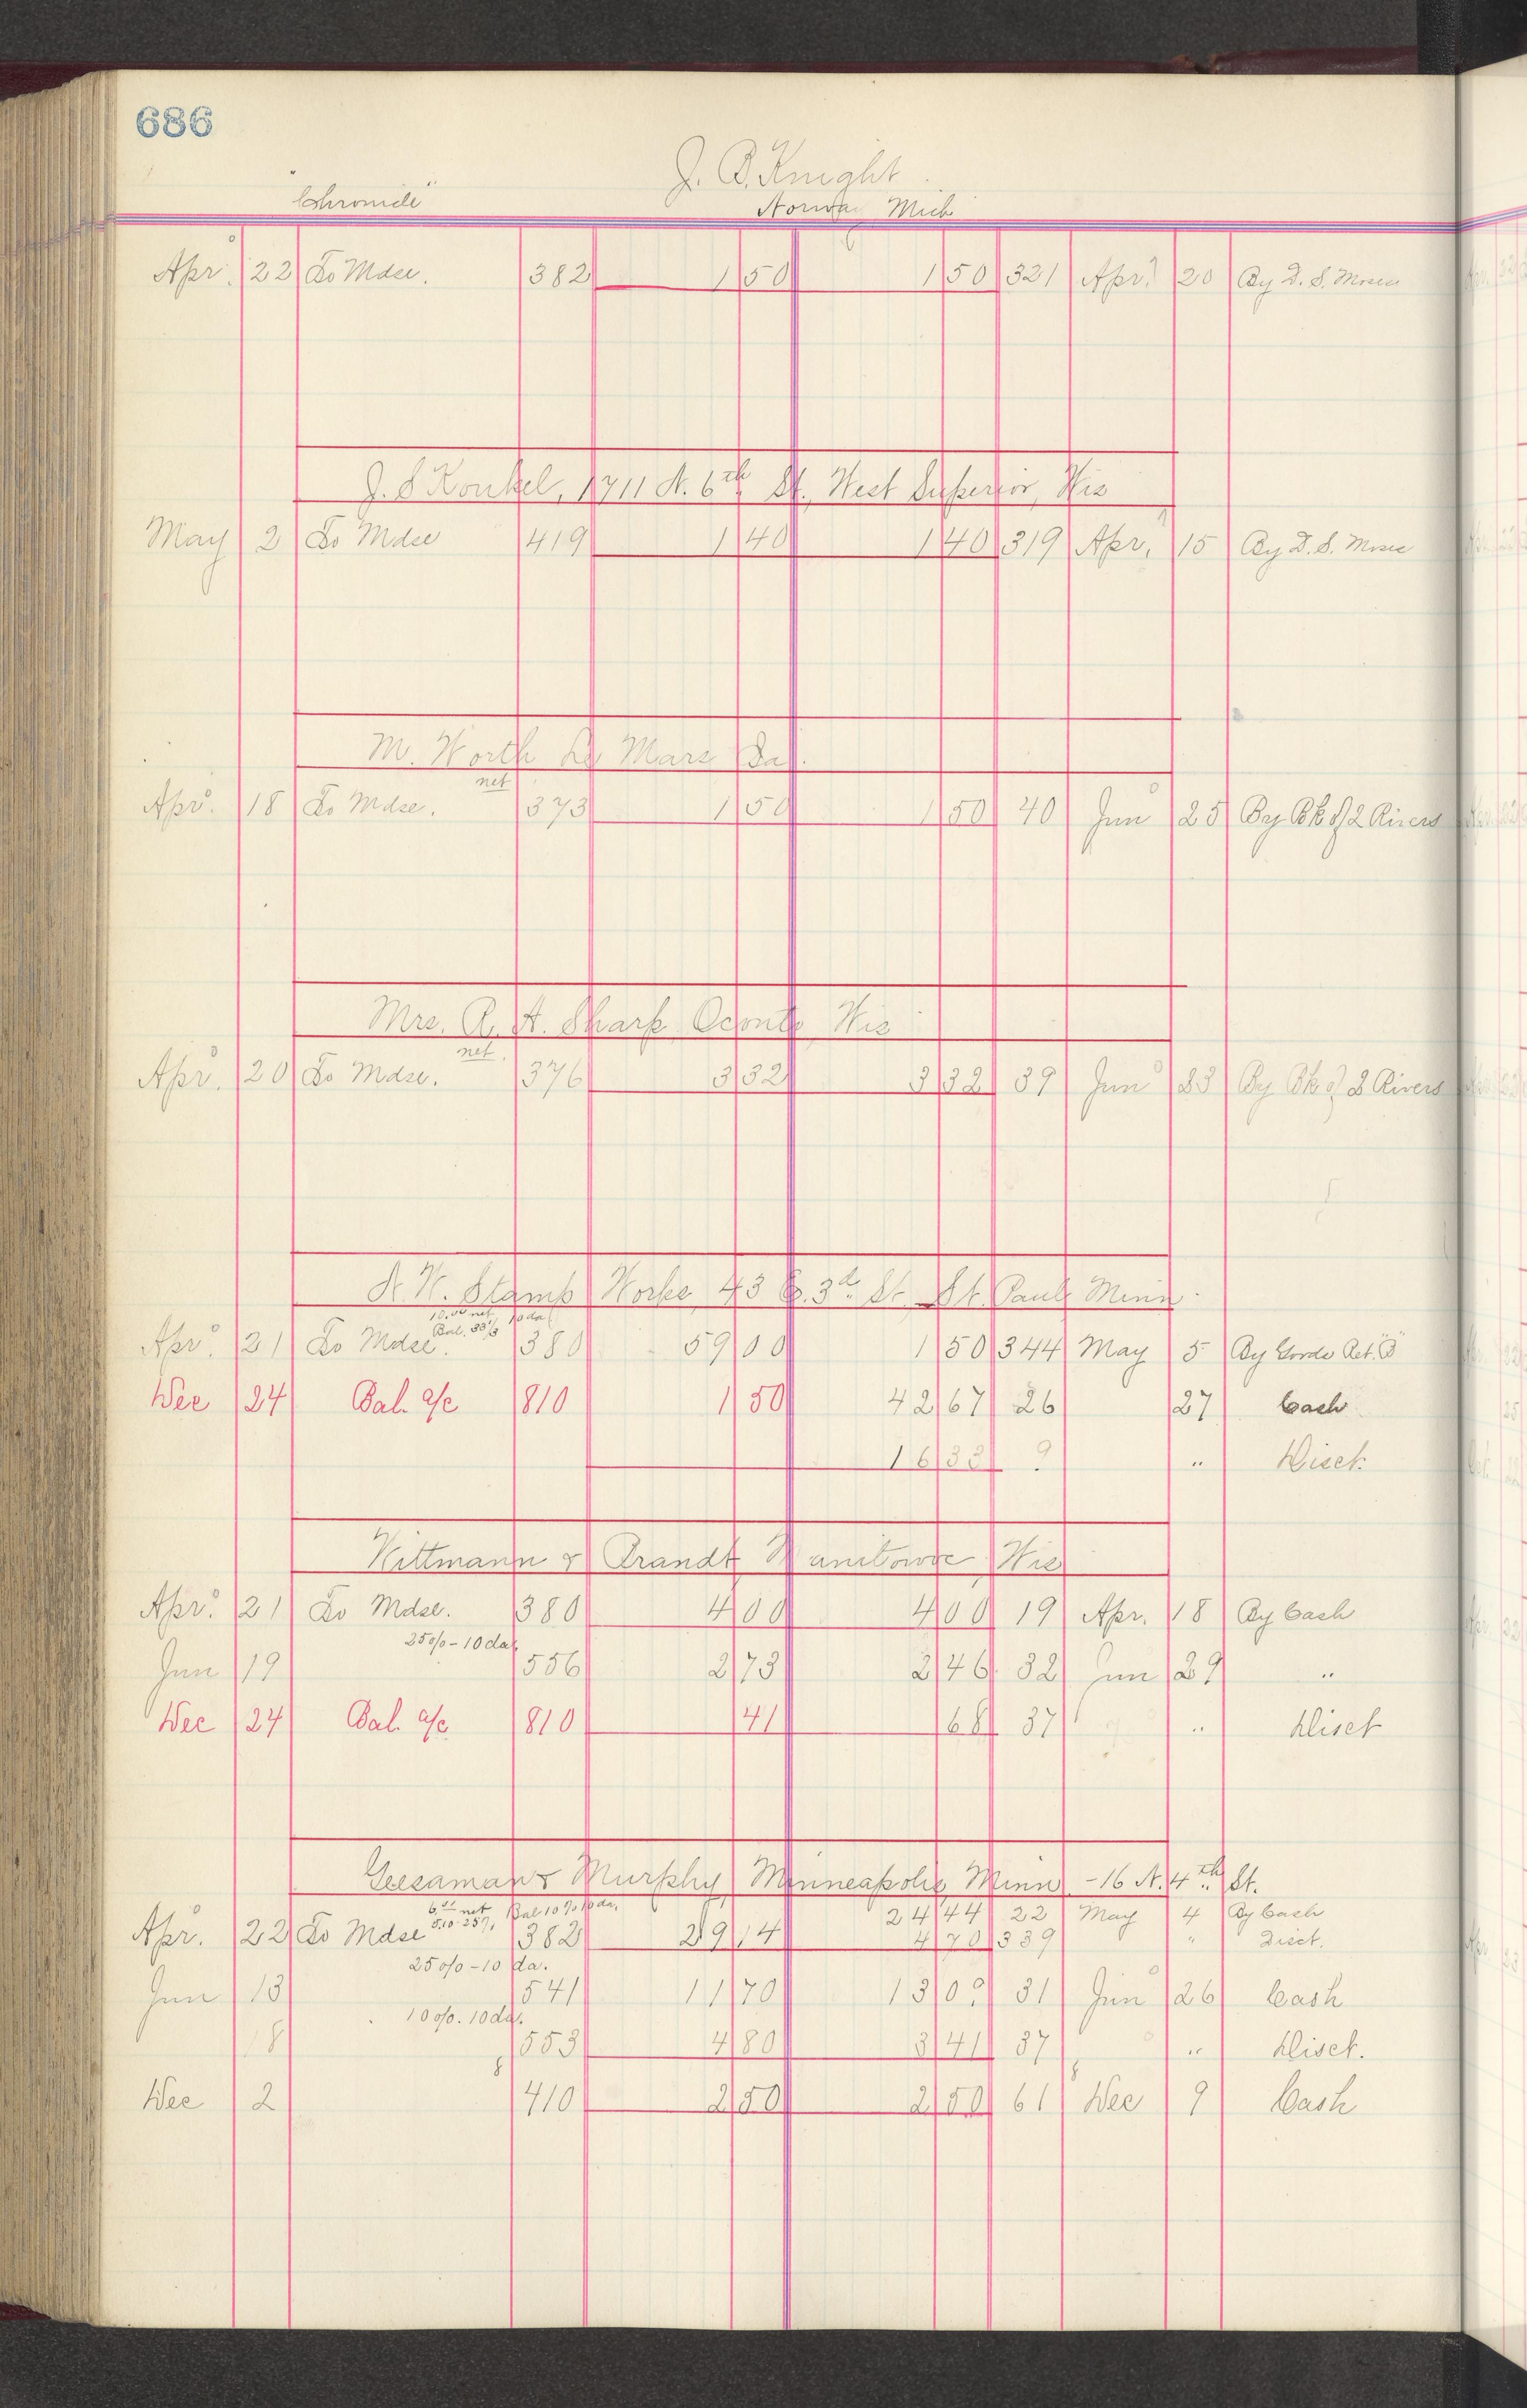 686
J. B. Knight
"Chronicle" Norway Mich
Apr. 22 To Mdse. 382 1 50 1 50 321 Apr. 20 By D. S. Moses
J. S Konkel, 1711 N. 6th St., West Superior, Wis
May 2 To Mdse 419 1 40 1 40 319 Apr. 15 By D. S. Moses
M. Worth Le Mars Ia.
net
Apr. 18 To Mdse. 373 1 50 1 50 40 Jun 25 By Bk of 2 Rivers
Mrs. R. A. Sharp, Oconto, Wis
net
Apr. 20 To Mdse. 376 3 32 3 32 39 Jun 23 By Bk of 2 Rivers
N. W. Stamp Works, 43 E. 3d St., St. Paul Minn
10.00 net 10 da
Bal. 33 1/3
Apr. 21 To Mdse. 380 59 00 1 50 344 May 5 By Goods Ret. "B"
Dec 24 Bal. a/c 810 1 50 42 67 26 27 Cash
16 33 9 " Disct.
Wittmann & Brandt, Manitowoc, Wis
Apr. 21 To Mdse. 380 4 00 4 00 19 Apr. 18 By Cash
25% - 10 da.
Jun 19 556 2 73 2 46 32 Jun 29 "
Dec 24 Bal. a/c 810 41 68 37 " Disct
Geesaman & Murphy, Minneapolis, Minn - 16 N. 4th St.
net Bal 10% 10 da. 24 44 22 May 4 By Cash
Apr. 22 To Mdse 5.10-25% 382 29 14 4 70 339 " Disct.
25% - 10 da.
Jun 13 541 11 70 13 09 31 Jun 26 Cash
10%. 10 da.
18 553 4 80 3 41 37 " Disct.
Dec 2 410 2 50 2 50 61 Dec 9 Cash